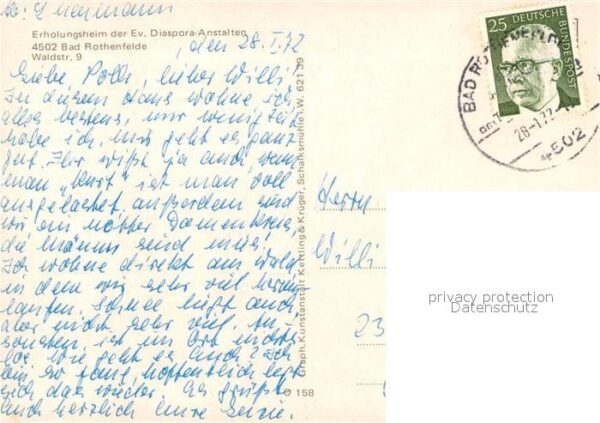 Erholungsheim der Ev. Diaspora-Anstalten
4502 Bad Rothenfelde
Waldstr. 9
den 28.I.72
Liebe Polli, lieber Willi
In diesem Haus wohne ich,
alles bestens, nur wenig Zeit
habe ich, mir geht es ganz
gut. Ihr wißt ja auch, wenn
man "kurt" ist man voll
ausgelastet, außerdem sind
wir ein netter Damenkreis,
die Männer sind mies!
Ich wohne direkt am Wald
in dem wir sehr viel herum
laufen. Schnee liegt auch
aber nicht sehr viel. An-
sonsten ist im Ort nichts
los. Wie geht es Euch? Ich
bin so faul, hoffentlich legt
sich das wieder. Es grüßt
Euch herzlich Eure
Graph. Kunstanstalt Ketting & Krüger, Schalksmühle i. W. 621 59
C 158
25 DEUTSCHE BUNDESPOST
BAD ROTHENFELDE
28-1.72
4502
Herrn
Willi
23
privacy protection
Datenschutz